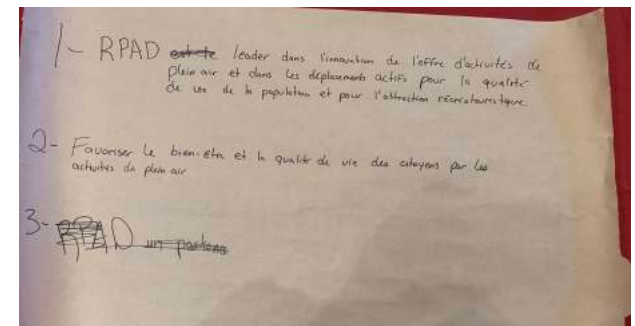 1- RPAD est le leader dans l'innovation de l'offre d'activités de
plein air et dans les déplacements actifs pour la qualité
de vie de la population et pour l'attraction récréotouristique
2- Favoriser le bien-être et la qualité de vie des citoyens par les
activités de plein air
3- RPAD un partena